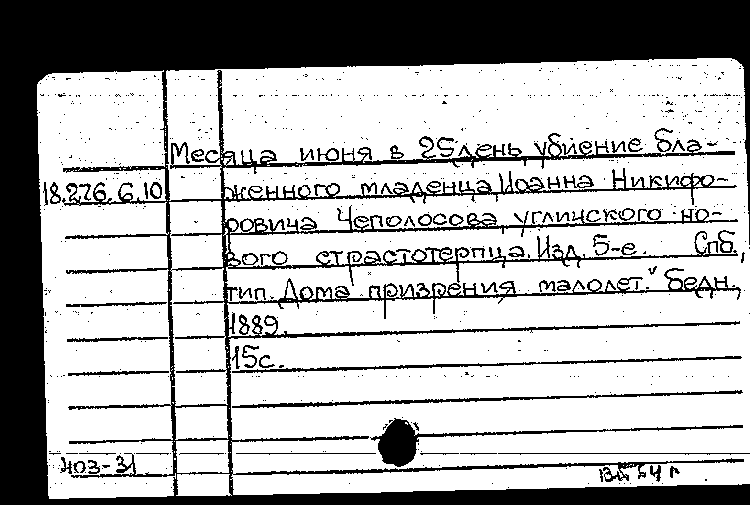 Месяца июня в 25 день, убиение бла-
18.276.6.10 женного младенца Иоанна Никифо-
ровича Чеполосова, углицкого но-
вого страстотерпца. Изд. 5-е. Спб.,
тип. Дома призрения малолет. бедн.,
1889.
15с.
403-31